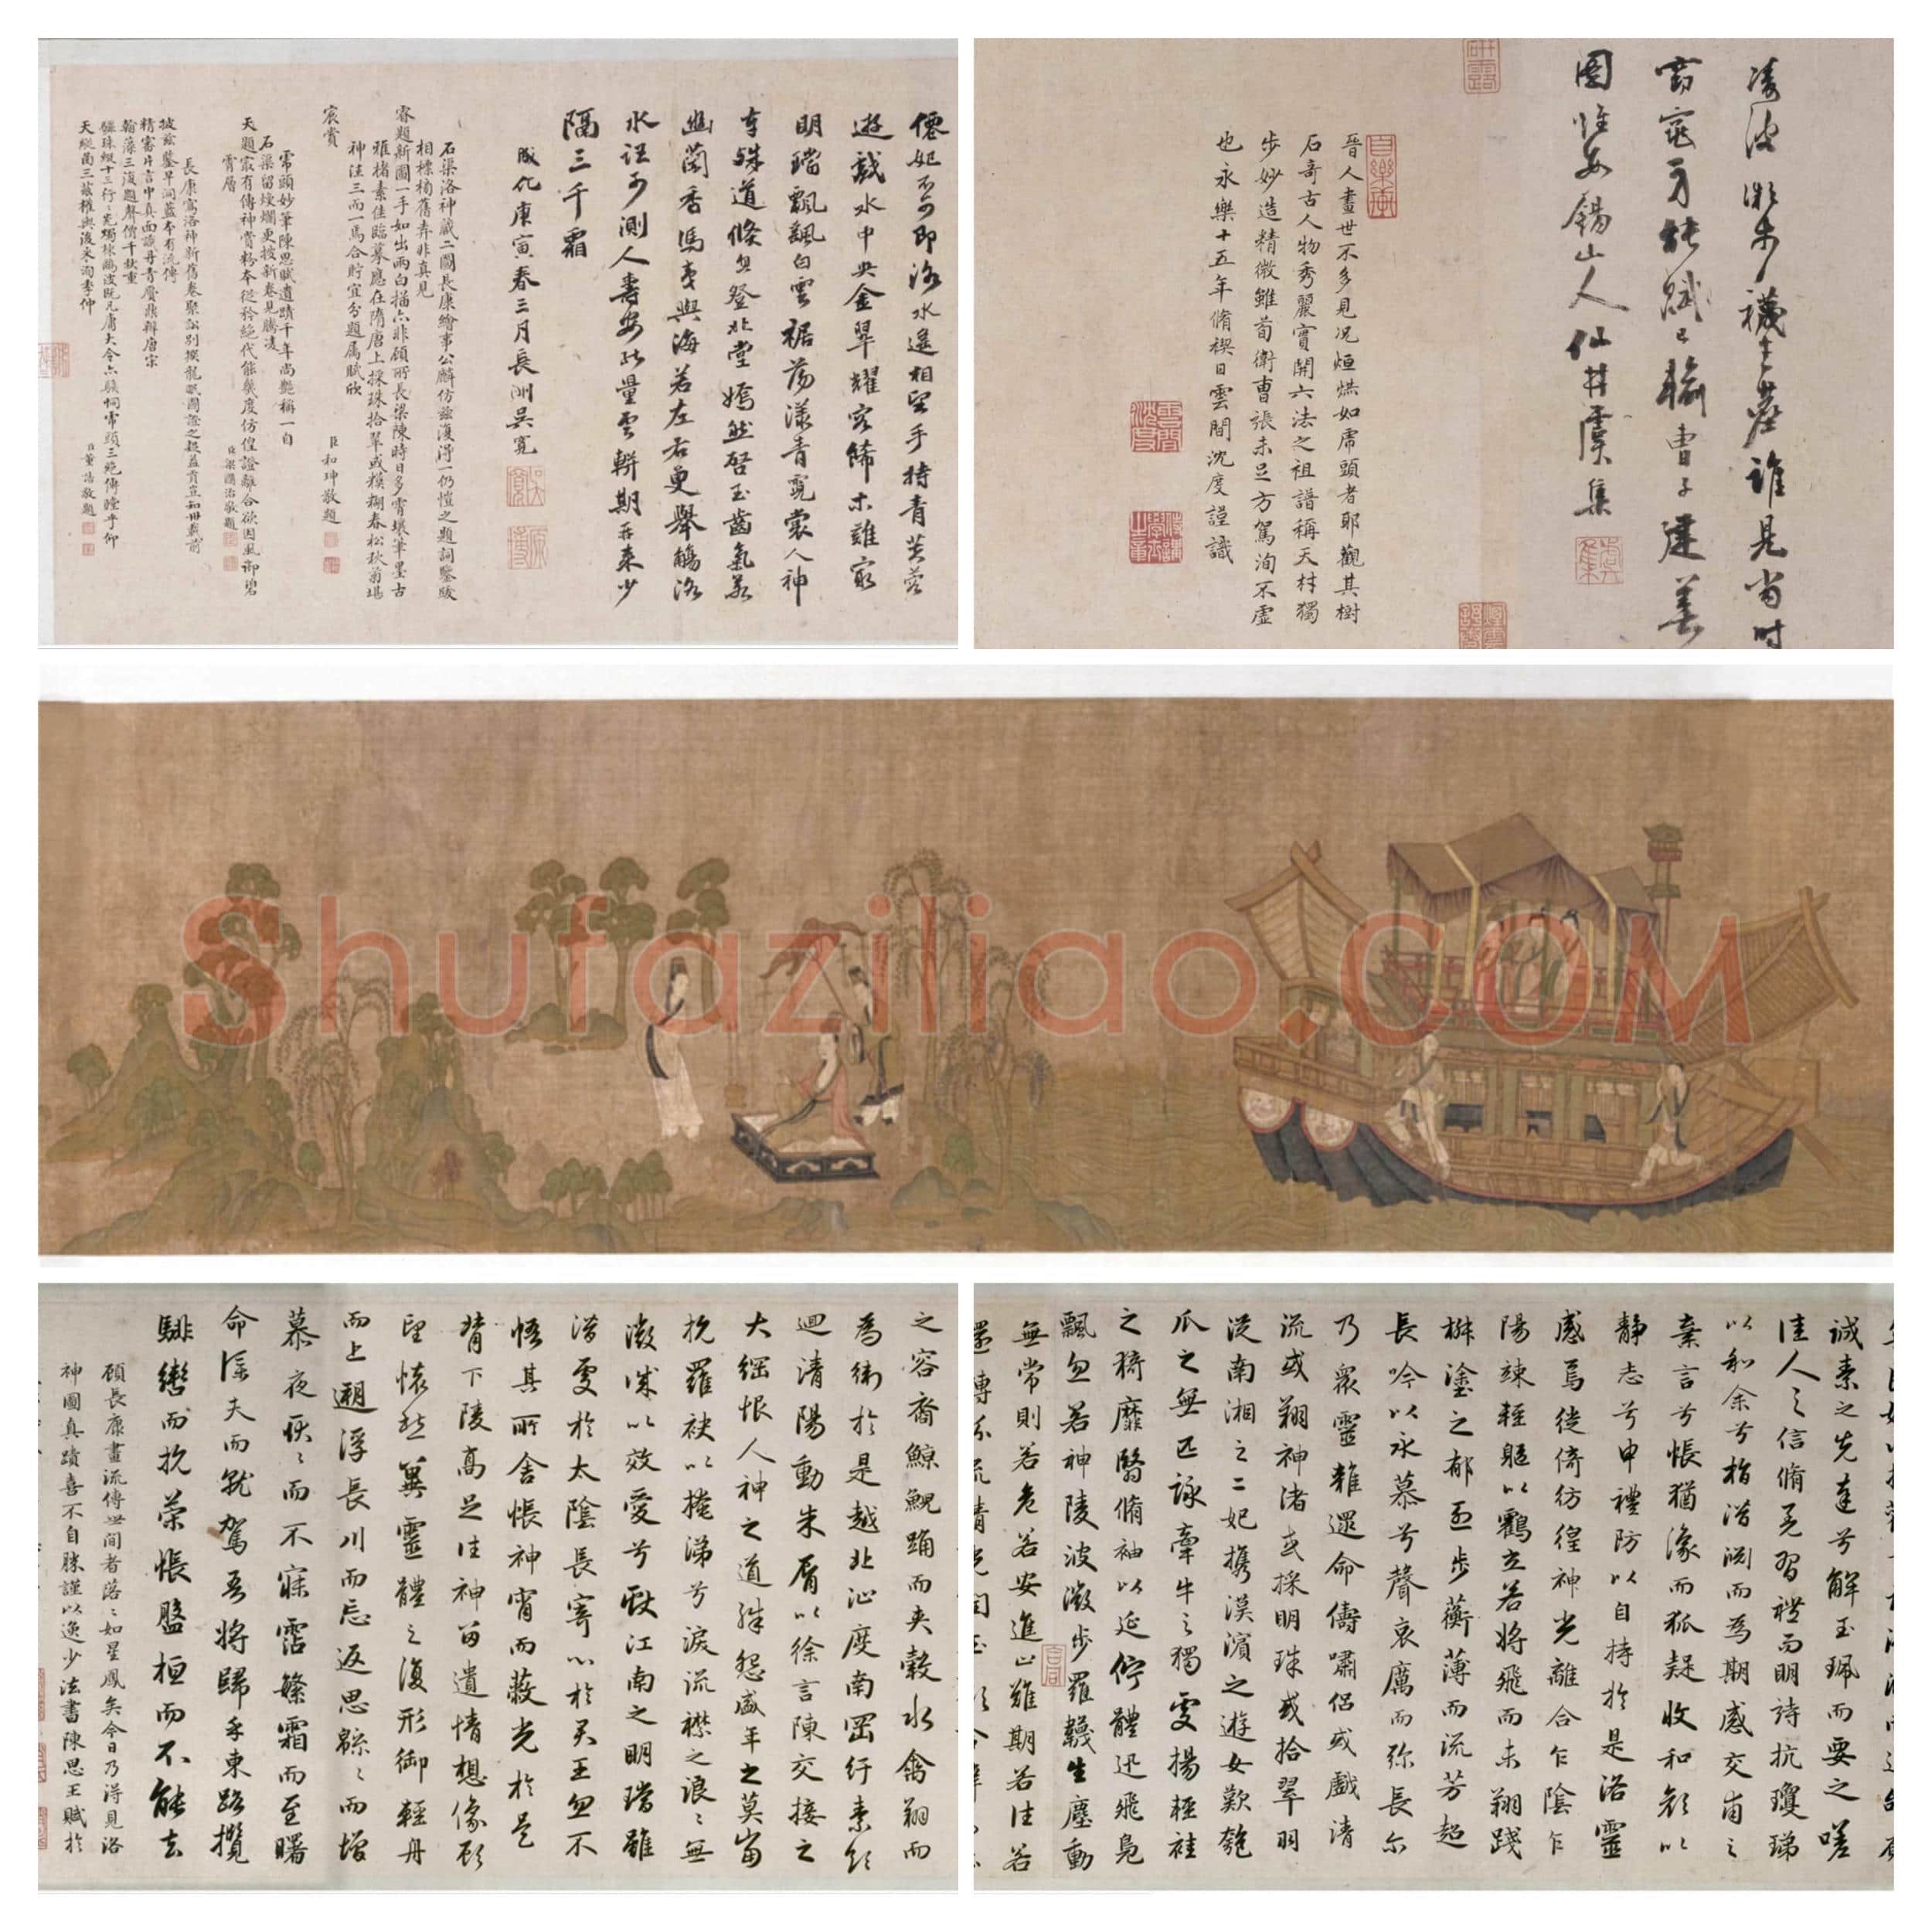 凌波微步襪生塵誰見當時
窈窕身能賦已輸曹子建善
圖惟有錫山人仙井虞集
晉人畫世不多見况烜烘如虎頭者耶觀其樹
石奇古人物秀麗實開六法之祖譜稱天材獨
步妙造精微雖荀衛曹張未足方駕洵不虛
也永樂十五年脩禊日雲間沈度謹識
僊妃不可即洛水遥相望手持青芙蓉
遊戲水中央金翠耀容飾
明璫飄飄白雲裾蕩漾青霓裳人神
幽蘭香馮夷與海若左右更舉觴洛
水詎可測人壽安此量雲輧期再來少
隔三千霜
成化庚寅春三月長洲吳寬
石渠洛神藏二圖長康繪事公麟仿兹復得一仍愷之題詞鑒駁
相標榜舊弆非真見
睿題新圖一手如出兩白描亦非顧所長梁陳時日多霄壤筆墨古
雅楮素佳臨摹應在隋唐上採珠拾翠或模糊春松秋菊堪
神注三而一焉合貯宜分題屬賦欣
宸賞
臣和珅敬題
虎頭妙筆陳思賦遺蹟千年尚艷稱一自
石渠留燦爛更披新卷見騰凌
天題寂有傳神賞粉本從矜絕代能幾度仿偟證離合欲因風御碧
霄層
臣梁國治敬題
長康寫洛神新舊卷聚訟別撰龍眠圖證之疑益貢豈知卅載前
披兹鑒早洞蓝本有流傳
精審片言中真面識丹青贗鼎辯唐宗
翰藻三復題聲價千秋重
天縱蔔三兹權與後來洵季仲
臣董誥敬題
Shufaziliao.COM
誠素之先達兮解玉珮而要之嗟
佳人之信脩羌習禮而明詩抗瓊珶
以和余兮指潛淵而為期感交甫之
棄言兮悵猶豫而狐疑收和顏以
靜志兮申禮防以自持於是洛靈
感焉徙倚彷徨神光離合乍陰乍
陽竦輕軀以鶴立若將飛而未翔踐
椒塗之郁烈步蘅薄而流芳超
長吟以永慕兮聲哀厲而弥長尔
乃眾靈雜遝命儔嘯侶或戲清
流或翔神渚或採明珠或拾翠羽
從南湘之二妃攜漢濱之遊女歎匏
瓜之無匹詠牽牛之獨處揚輕袿
之猗靡翳脩袖以延佇體迅飛鳧
飄忽若神陵波微步羅韈生塵動
無常則若危若安進止難期若往若
之容裔鯨鯢踊而夾轂水禽翔而
為衛於是越北沚度南岡紆素領
迴清陽動朱脣以徐言陳交接之
大綱恨人神之道殊怨盛年之莫當
抗羅袂以掩涕兮淚流襟之浪浪無
微誠以效愛兮獻江南之明璫雖
潛處於太陰長寄心於君王忽不
悟其所舍悵神宵而蔽光於是
背下陵高足往神留遺情想像顧
望懷愁冀靈體之復形御輕舟
而上遡浮長川而忘返思緜緜而增
慕夜耿耿而不寐霑繁霜而至曙
命僕夫而就駕吾將歸乎東路攬
騑轡而抗策悵盤桓而不能去
顧長康畫流傳世間者落落如星鳳矣今日乃得見洛
神圖真蹟喜不自勝謹以逸少法書陳思王賦於